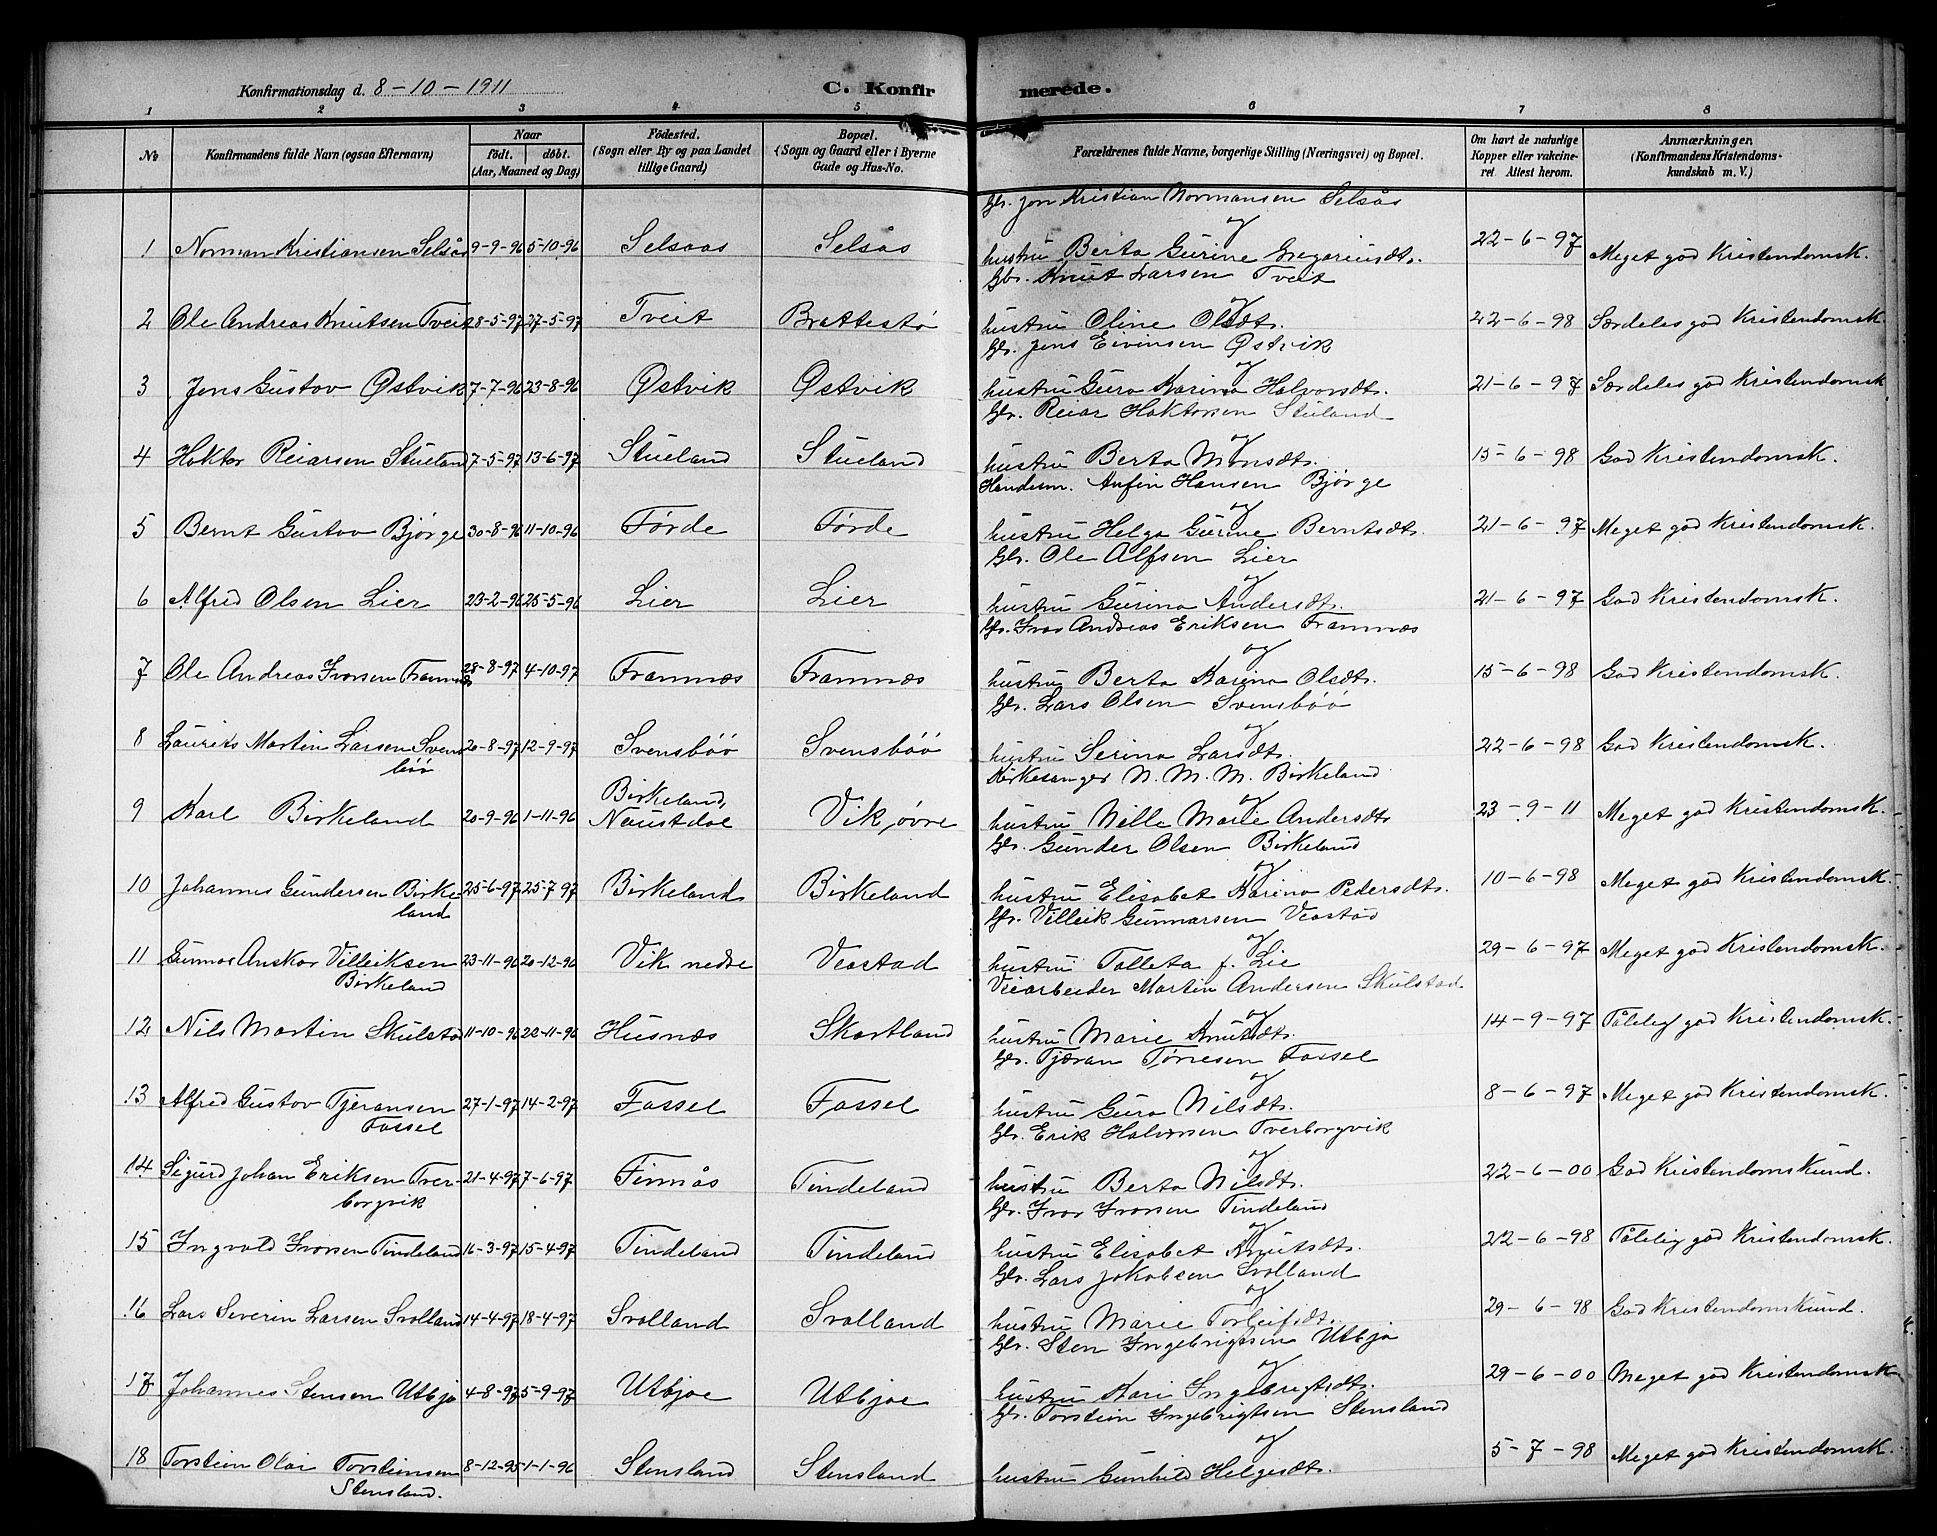 Konfirmationsdag d. 8-10-1911 C. Konfirmerede.
1 2 3 4 5 6 7 8
No Konfirmandens fulde Navn (ogsaa Efternavn) Naar født. døbt. (Aar, Maaned og Dag) Fødested. (Sogn eller By og paa Landet tillige Gaard) Bopæl. (Sogn og Gaard eller i Byerne Gade og Hus-No. Forældrenes fulde Navne, borgerlige Stilling (Næringsvei) og Bopæl. Om havt de naturlige Kopper eller vakcineret Attest herom. Anmærkninger. (Konfirmandens Kristendomskundskab m. V.)
Gbr. Jon Kristian Normansen Selsås
og
1 Norman Kristiansen Selsås 9-9-96 5-10-96 Selsaas Selsås hustru Berta Gurine Gregoriusdtr. 22-6-97 Meget god Kristendomsk.
Gbr. Knut Larsen Tveit
og
2 Ole Andreas Knutsen Tveit 28-5-97 27-5-97 Tveit Brattestø hustru Oline Olsdtr. 22-6-98 Særdeles god Kristendomsk.
Gbr. Jens Eivinsen Østvik
og
3 Jens Gustav Østvik 7-7-96 23-8-96 Østvik Østvik hustru Guro Karina Halvorsdtr. 21-6-97 Særdeles god Kristendomsk
Gbr. Reiar Haktorsen Stueland
og
4 Haktor Reiarsen Stueland 7-5-97 13-6-97 Stueland Stueland hustru Berta Monsdtr. 15-6-98 God Kristendomsk.
Handesm. Anfin Hansen Bjørge
og
5 Bernt Gustav Bjørge 30-8-96 11-10-96 Førde Førde hustru Helga Gurine Berntsdtr. 21-6-97 Meget god Kristendomsk.
Gbr. Ole Alfsen Lier
og
6 Alfred Olsen Lier 23-2-96 25-5-96 Lier Lier hustru Gurina Andersdtr. 21-6-97 God Kristendomsk.
Gbr. Ivar Andreas Eriksen Framnæs
og
7 Ole Andreas Ivarsen Framnæs 28-8-97 4-10-97 Framnæs Framnæs hustru Berta Karina Olsdtr. 15-6-98 God Kristendomsk.
Gbr. Lars Olsen Svensbøø
og
8 Laurits Martin Larsen Svens 20-8-97 12-9-97 Svensbøø Svensbøø hustru Serina Larsdtr. 22-6-98 God Kristendomsk.
bøø
Kirkesanger N. M. M. Birkeland
Birkeland,
og
9 Karl Birkeland 20-9-96 1-11-96 Naustdal Vik, øvre hustru Nille Marie Andersdtr 23-9-11 Meget god Kristendomsk.
Gbr. Gunder Olsen Birkeland
og
10 Johannes Gundersen Birke- 25-6-97 25-7-97 Birkeland Birkeland hustru Elisabet Karina Pedersdtr. 10-6-98 Meget god Kristendomsk.
land
Gbr. Villeik Gunnarsen Veastad
og
11 Gunnar Anskar Villeiksen 23-11-96 20-12-96 Vik nedre Veastad hustru Tolleta f. Lie 29-6-97 Meget god Kristendomsk.
Birkeland
Veiarbeider Martin Andersen Skulstad
og
12 Nils Martin Skulstad 11-10-96 22-11-96 Husnæs Skartland hustru Marie Knutsdtr. 14-9-97 Tålelig god Kristendomsk.
Gbr. Tjæran Tønesen Fassel
og
13 Alfred Gustav Tjeransen 27-1-97 14-2-97 Fassel Fassel hustru Guro Nilsdtr. 8-6-97 Meget god Kristendomsk.
Fassel
Gbr. Erik Halvorsen Tverborgvik
og
14 Sigurd Johan Eriksen Tver- 21-4-97 7-6-97 Finnås Tindeland hustru Berta Nilsdtr. 22-6-00 God Kristendomskund.
borgvik
Gbr. Ivar Ivarsen Tindeland
og
15 Ingvald Ivarsen Tindeland 16-3-97 15-4-97 Tindeland Tindeland hustru Elisabet Knutsdtr. 22-6-98 Tålelig god Kristendomsk.
Gbr. Lars Jakobsen Svolland
og
16 Lars Severin Larsen Svolland 14-4-97 18-4-97 Svolland Svolland hustru Marie Torleifsdtr. 29-6-98 God Kristendomskund.
Gbr. Sten Ingebrigtsen Utbjo
og
17 Johannes Stensen Utbjo 4-8-97 5-9-97 Utbjoe Utbjoe hustru Kari Ingebrigtsdtr. 29-6-00 Meget god Kristendomsk
Gbr. Torstein Ingebrigtsen Stensland
og
18 Torstein Olai Torsteinsen 8-12-95 1-1-96 Stensland Stensland hustru Gunhild Helgesdtr. 5-7-98 Meget god Kristendomsk.
Stensland.